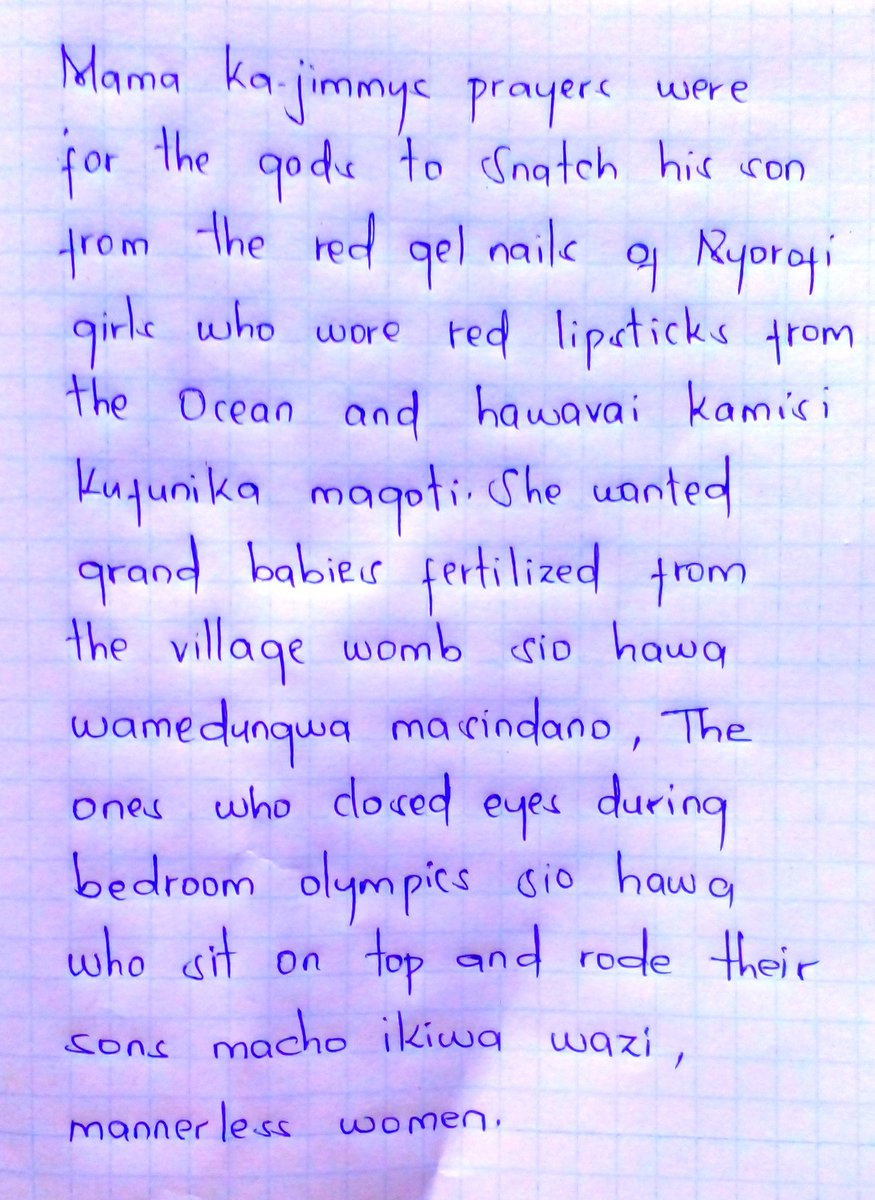 Mama ka-jimmys prayers were
for the gods to snatch his son
from the red gel nails of Nyorofi
girls who wore red lipsticks from
the Ocean and hawavai kamisi
kufunika magoti. She wanted
grand babies fertilized from
the village womb sio hawa
wamedungwa masindano, The
ones who closed eyes during
bedroom olympics sio hawa
who sit on top and rode their
sons macho ikiwa wazi,
mannerless women.